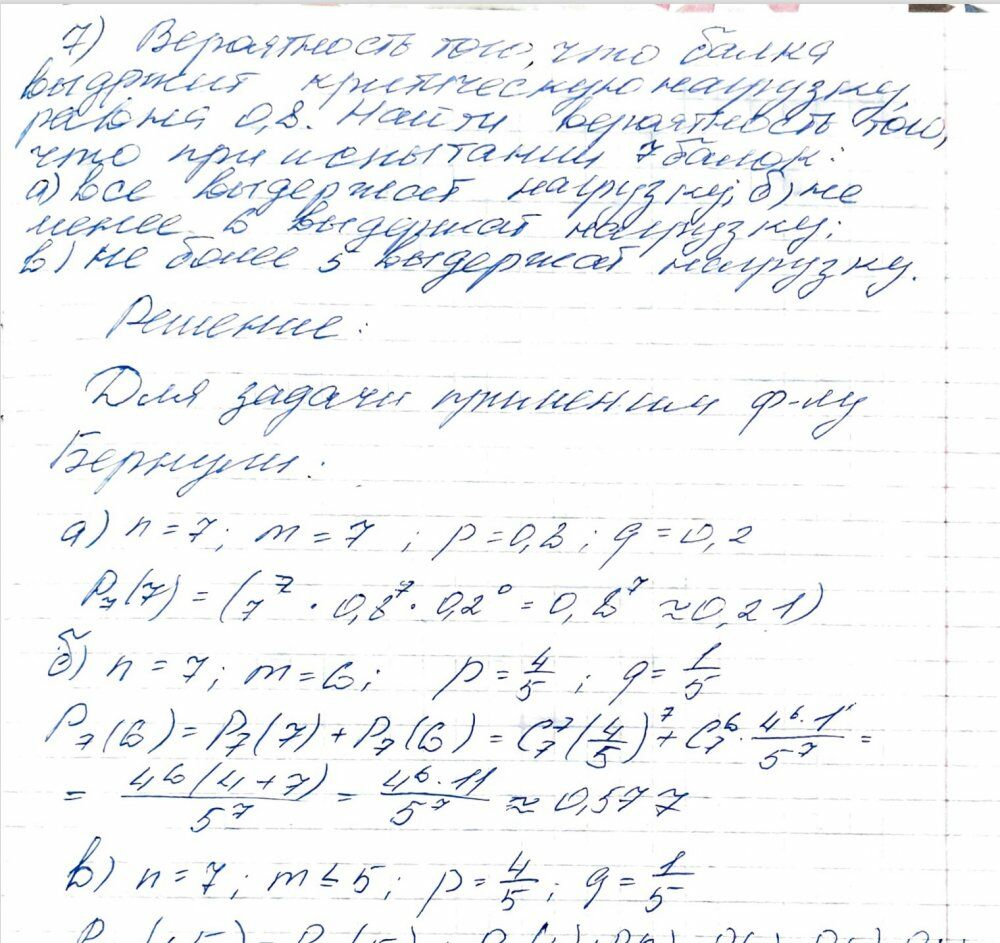 7) Вероятность того, что балка
выдержит критическую нагрузку,
равна 0,8. Найти вероятность того,
что при испытании 7 балок:
а) все выдержат нагрузку; б) не
менее 6 выдержат нагрузку;
в) не более 5 выдержат нагрузку.
Решение:
Для задачи применим ф-лу
Бернулли:
а) n = 7; m = 7 ; p = 0,8; q = 0,2
P₇(7) = C₇⁷ · 0,8⁷ · 0,2⁰ = 0,8⁷ ≈ 0,21)
б) n = 7; m = 6; p = 4/5 ; q = 1/5
P₇(6) = P₇(7) + P₇(6) = C₇⁷(4/5)⁷ + C₇⁶ · 4⁶·1/5⁷ =
= 4⁶(4+7)/5⁷ = 4⁶·11/5⁷ ≈ 0,577
в) n = 7; m ≤ 5; p = 4/5; q = 1/5